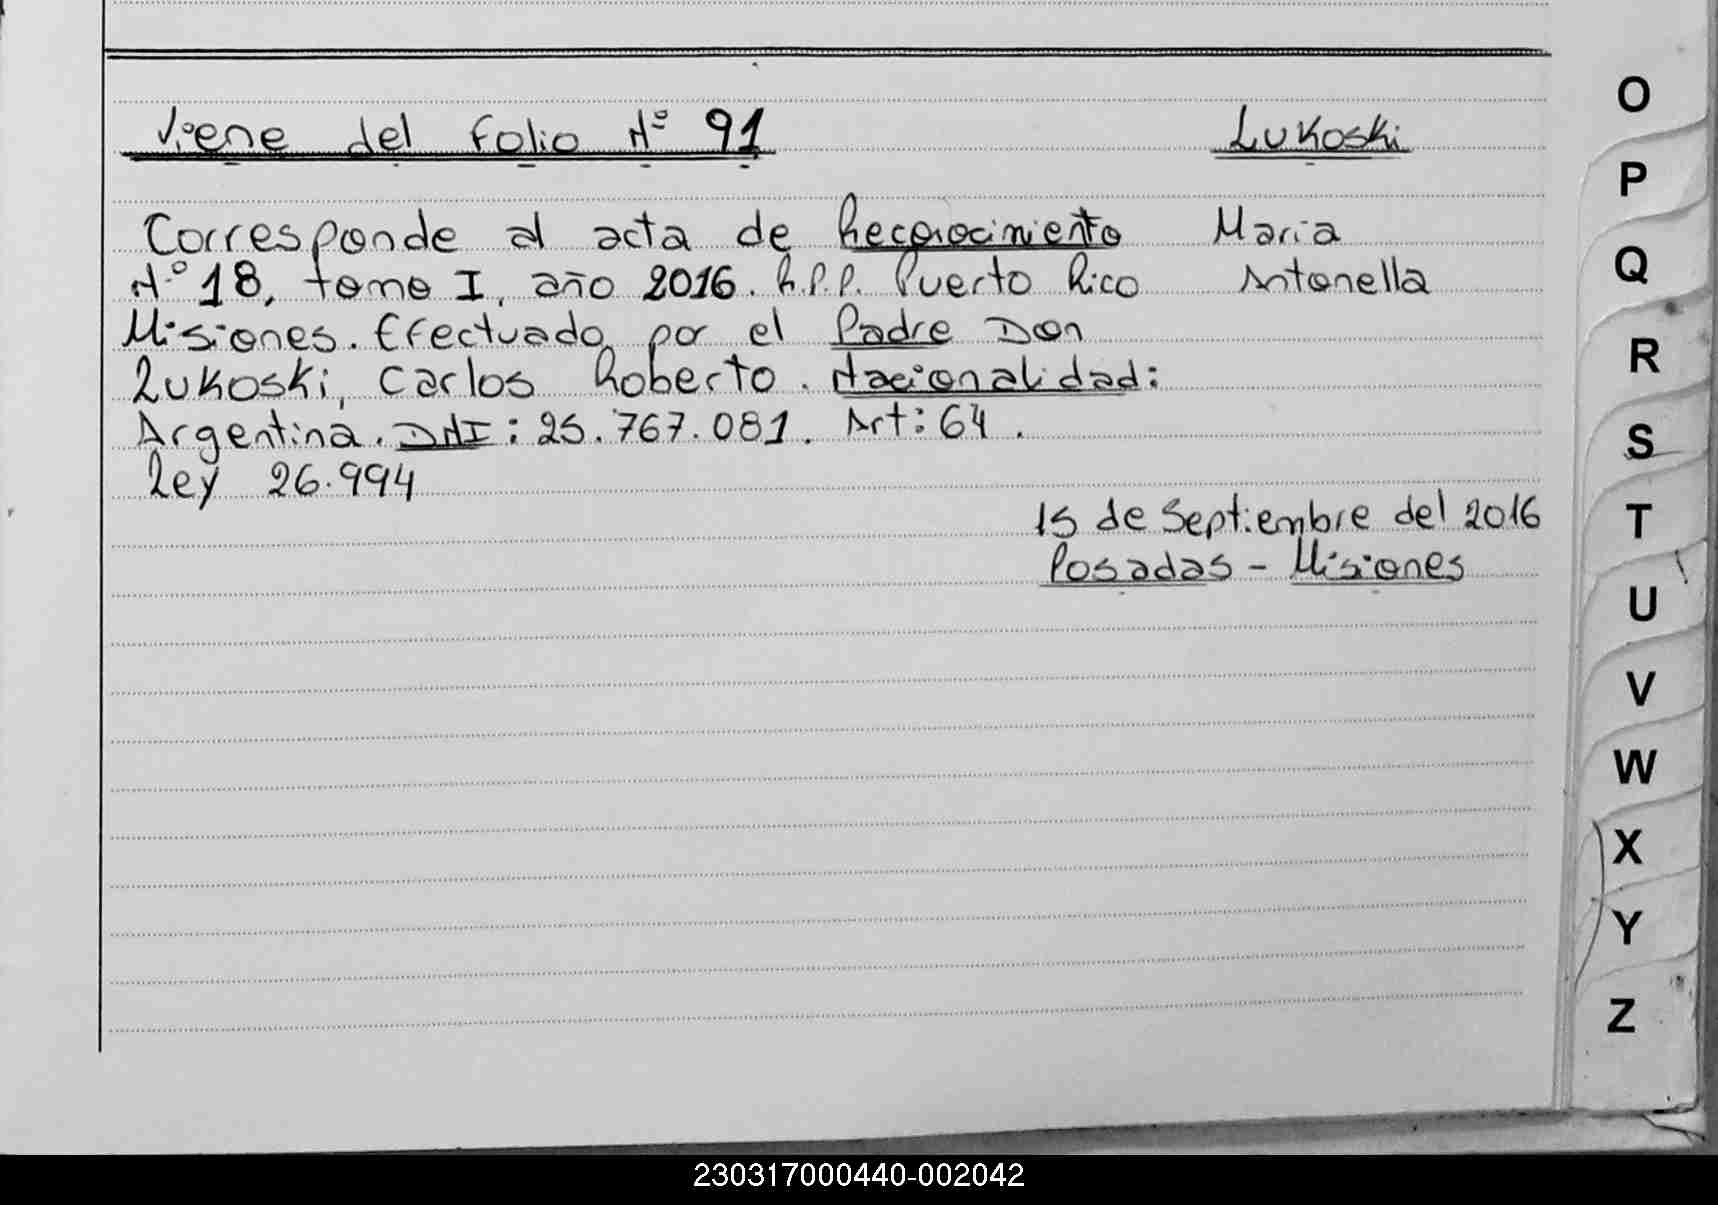 Viene del Folio N° 91
Lukoski
Corresponde al acta de Reconocimiento
Maria
N° 18, tomo I, año 2016. R.P.P. Puerto Rico
Antonella
Misiones. Efectuado por el Padre Don
Lukoski, Carlos Roberto. Nacionalidad:
Argentina. DNI: 25.767.081. Art: 64.
Ley 26.994
15 de Septiembre del 2016
Posadas - Misiones
O
P
Q
R
S
T
U
V
W
X
Y
Z
230317000440-002042